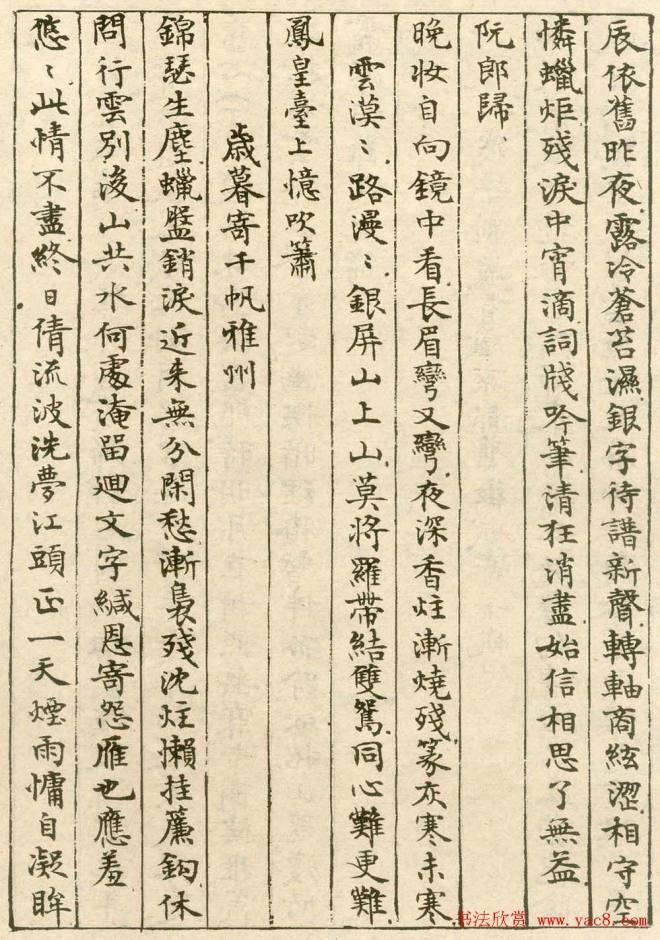 辰依舊昨夜露冷蒼苔濕銀字待譜新聲轉軸商絃澀相守空
憐蠟炬殘淚中宵滴詞牋吟筆清狂消盡始信相思了無益
阮郎歸
晚妝自向鏡中看長眉彎又彎夜深香炷漸燒殘篆灰寒未寒
雲漠〻路漫〻銀屏山上山莫將羅帶結雙鴛同心難更難
鳳皇臺上憶吹簫
歲暮寄千帆雅州
錦瑟生塵蠟盤銷淚近来無分閑愁漸裊殘沈炷懶挂簾鈎休
問行雲別後山共水何處淹留迴文字緘恩寄怨雁也應羞
悠〻此情不盡終日倩流波洗夢江頭正一天煙雨慵自凝眸
书法欣赏 www.yac8.com